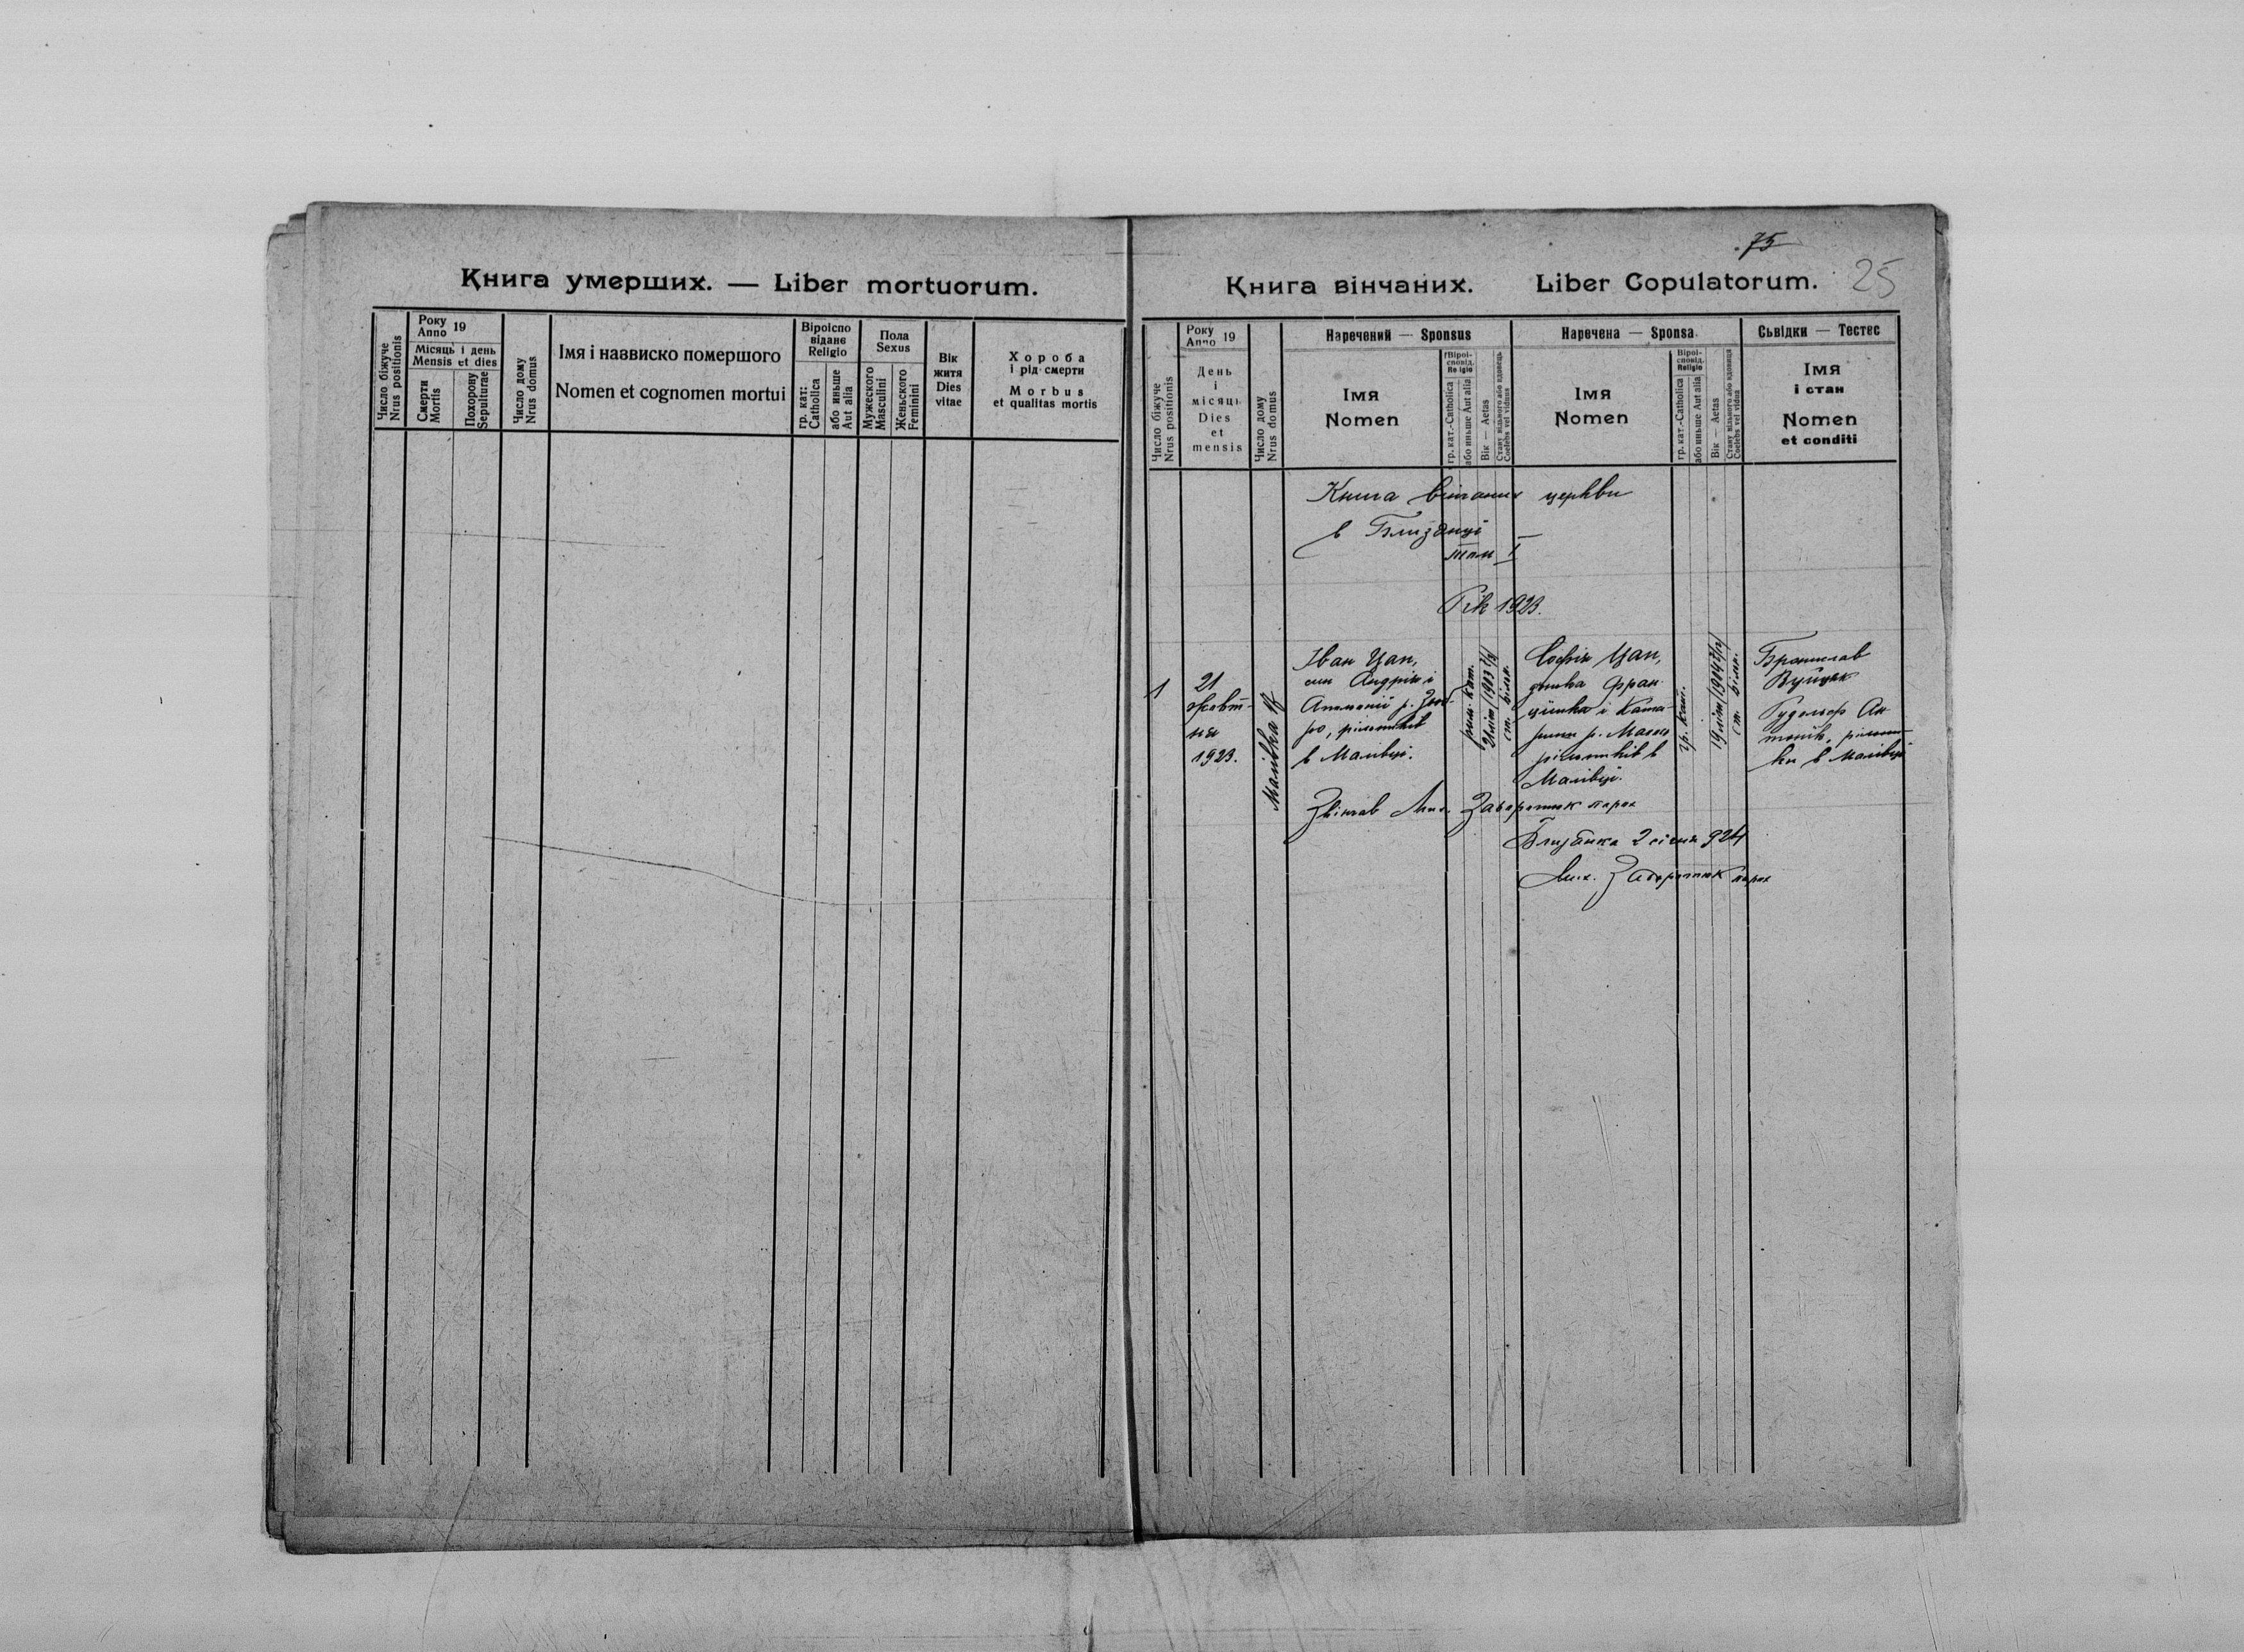 Книга умерших. — Liber mortuorum.
Число біжуче
Nrus positionis
Року
Anno 19
Місяць і день
Mensis et dies
Смерти
Mortis
Похорону
Sepulturae
Число дому
Nrus domus
Імя і наввиско помершого
Nomen et cognomen mortui
Віроіспо
відане
Religio
гр. кат:
Catholica
або инньше
Aut alia
Пола
Sexus
Мужеского
Masculini
Женьского
Feminini
Вік
житя
Dies
vitae
Хороба
і рід смерти
Morbus
et qualitas mortis
75
25
Книга вінчаних. Liber Copulatorum.
Число біжуче
Nrus positionis
Року
Anno 19
День
і
місяць
Dies
et
mensis
Число дому
Nrus domus
Наречений — Sponsus
Імя
Nomen
Віроі-
сповід.
Religio
гр. кат.-Catholica
або иньше Aut alia
Вік — Aetas
Стану вільного або вдовець
Coelebs vel viduus
Наречена — Sponsa
Імя
Nomen
Віроі-
сповід.
Religio
гр. кат.-Catholica
або иньше Aut alia
Вік — Aetas
Стану вільного або вдовиця
Coelebs vel vidua
Сьвідки — Тестес
Імя
і стан
Nomen
et conditi
Книга вінчаних церкви
в Близанці
том I
Рік 1923.
1
21
жовт-
ня
1923.
Малівка
Іван Цап,
син Андрія і
Антонії р.
рільників
в Малівці.
рим. кат.
21 літ 1903
ст. вільн.
Софія Цап,
дочка Фран-
цішка і Ката-
рини р.
рільників в
Малівці.
гр. кат.
19 літ 1904
ст. вільн.
Броніслав
Вуйцяк
Рудольф Ан-
тонік, рільни-
ки в Малівці
Звінчав Мих. Заворотюк парох
Близанка 2 січня 924
Мих. Заворотюк парох